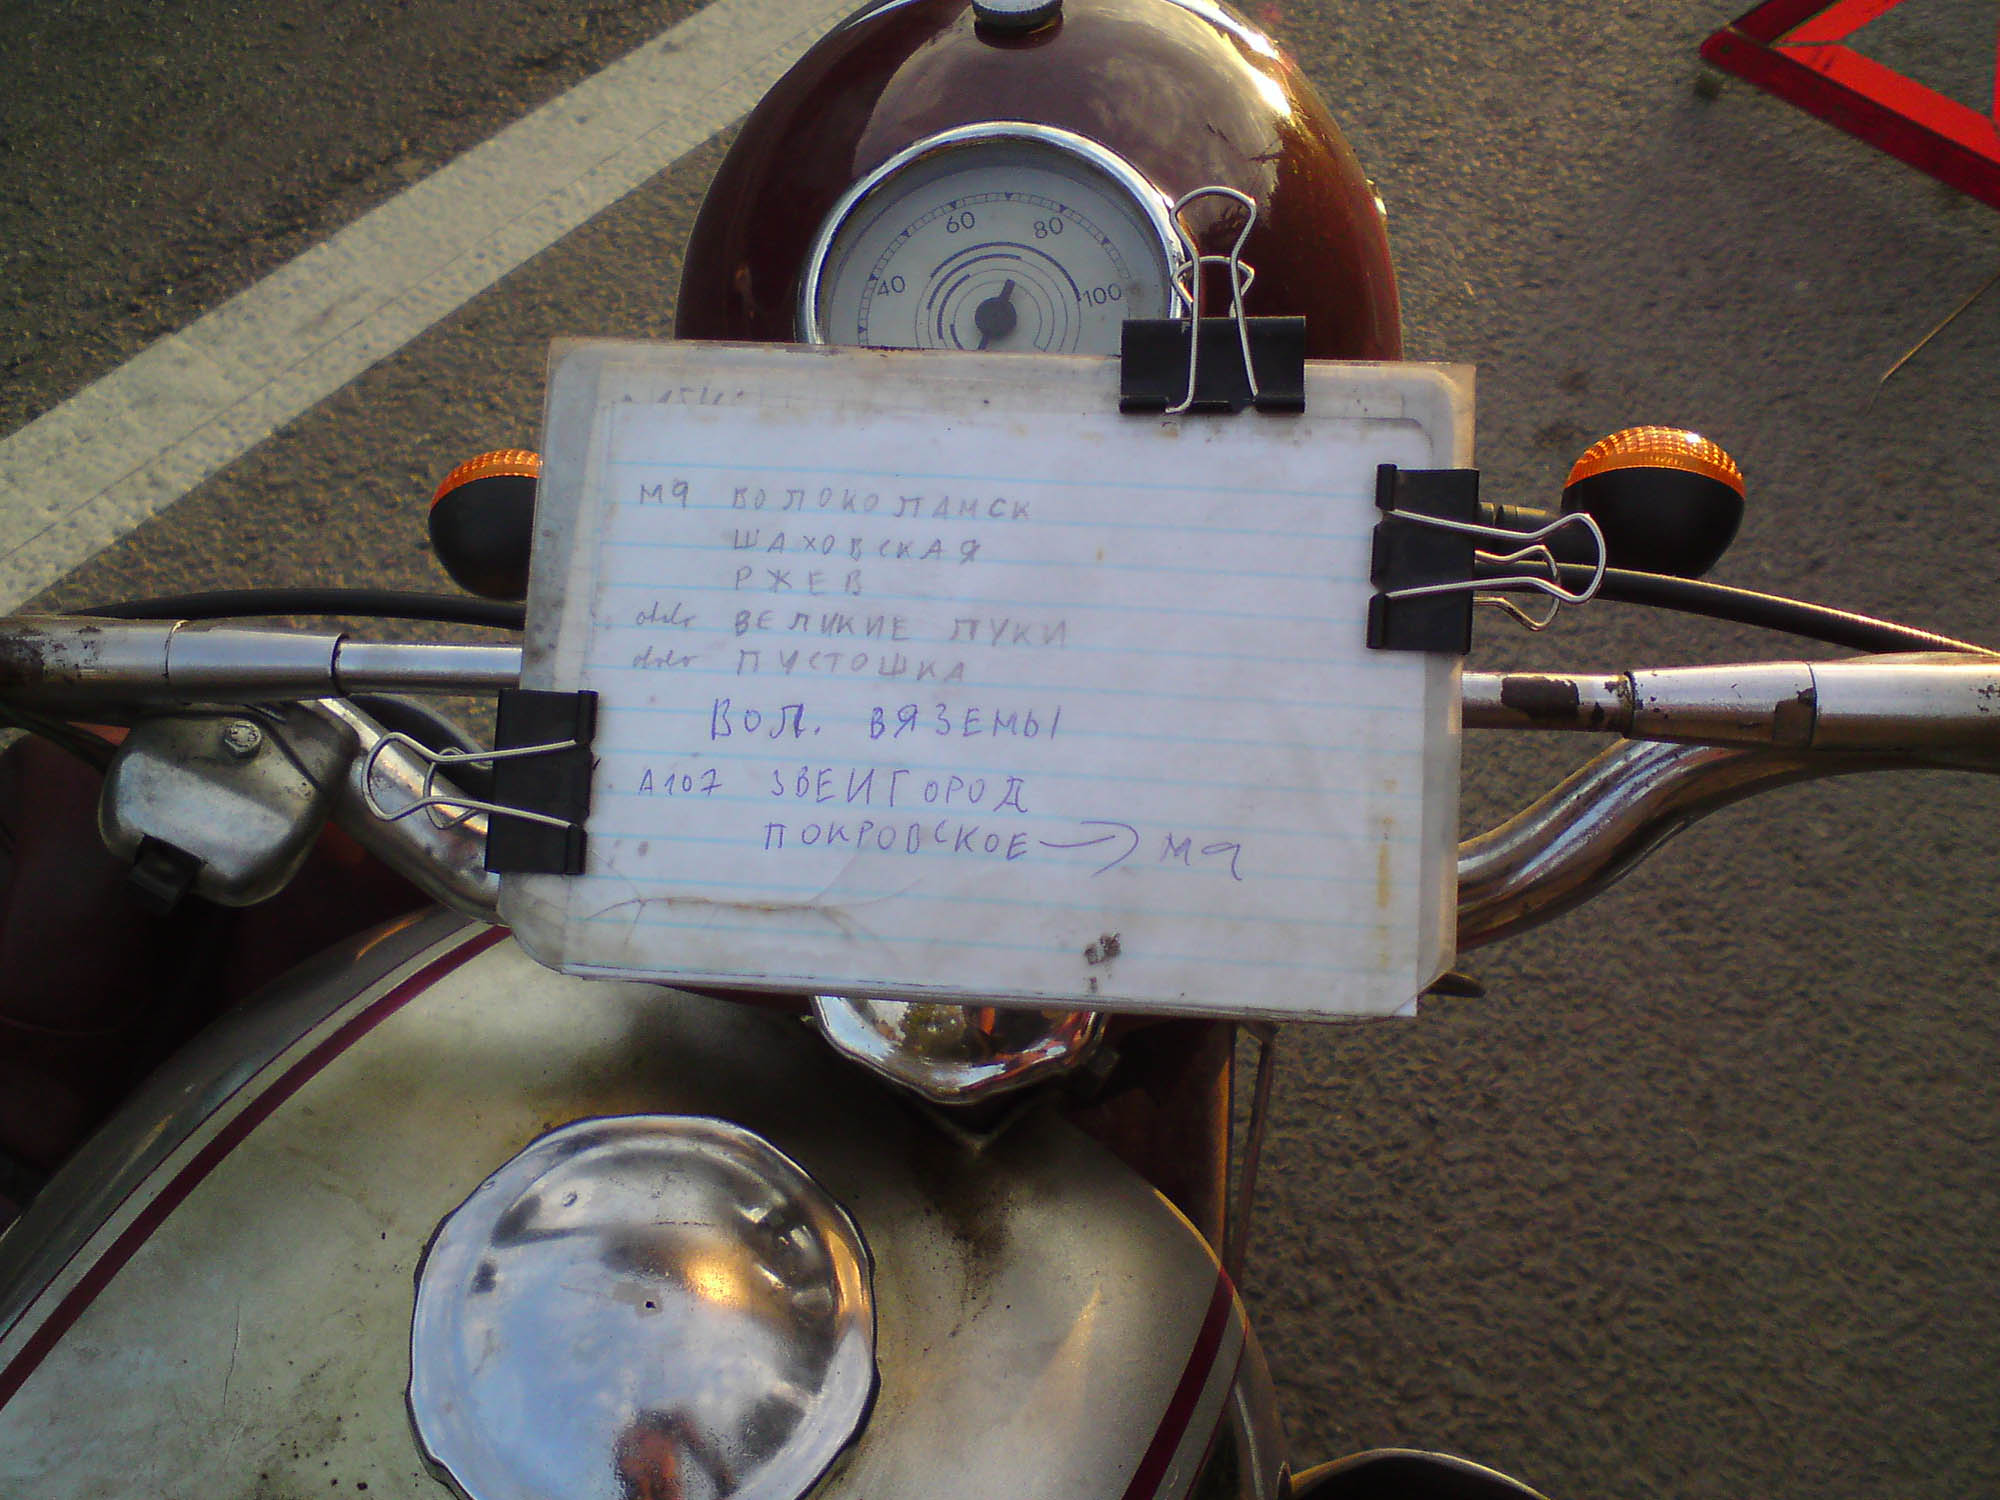 40 60 80 100
М9 ВОЛОКОЛАМСК
ШАХОВСКАЯ
РЖЕВ
ВЕЛИКИЕ ЛУКИ
ПУСТОШКА
ВОЛ. ВЯЗЕМЫ
А107 ЗВЕНИГОРОД
ПОКРОВСКОЕ → М9